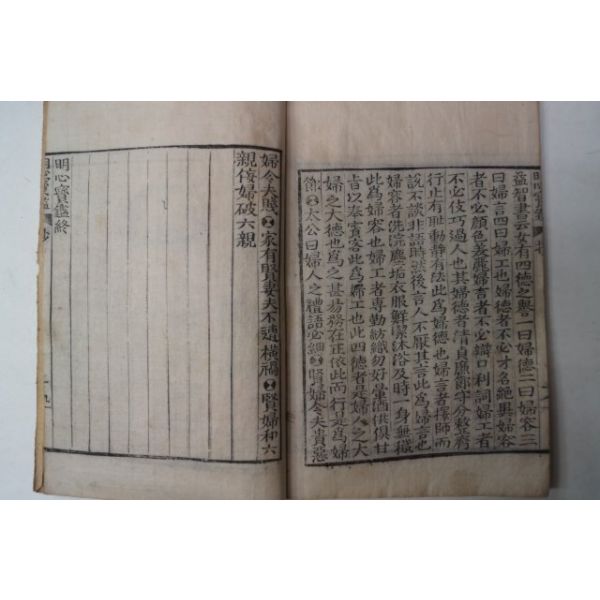 明心寶鑑 抄
益智書云女有四德之譽一曰婦德二曰婦容三
曰婦言四曰婦工也婦德者不必才名絶異婦容
者不必顔色美麗婦言者不必辯口利詞婦工者
不必伎巧過人也其婦德者淸貞廉節守分整齊
行止有恥動靜有法此爲婦德也婦言者擇師而
說不談非語時然後言人不厭其言此爲婦言也
婦容者洗浣塵垢衣服鮮潔沐浴及時一身無穢
此爲婦容也婦工者專勤紡織勿好暈酒供俱甘
旨以奉賓客此爲婦工也此四德者是婦人之大
婦之大德也爲之甚易務在正依此而行是爲婦
節 太公曰婦人之禮語必細 賢婦令夫貴惡
婦令夫賤 家有賢妻夫不遭橫禍 賢婦和六
親侫婦破六親
明心寶鑑終
明心寶鑑 抄 十九